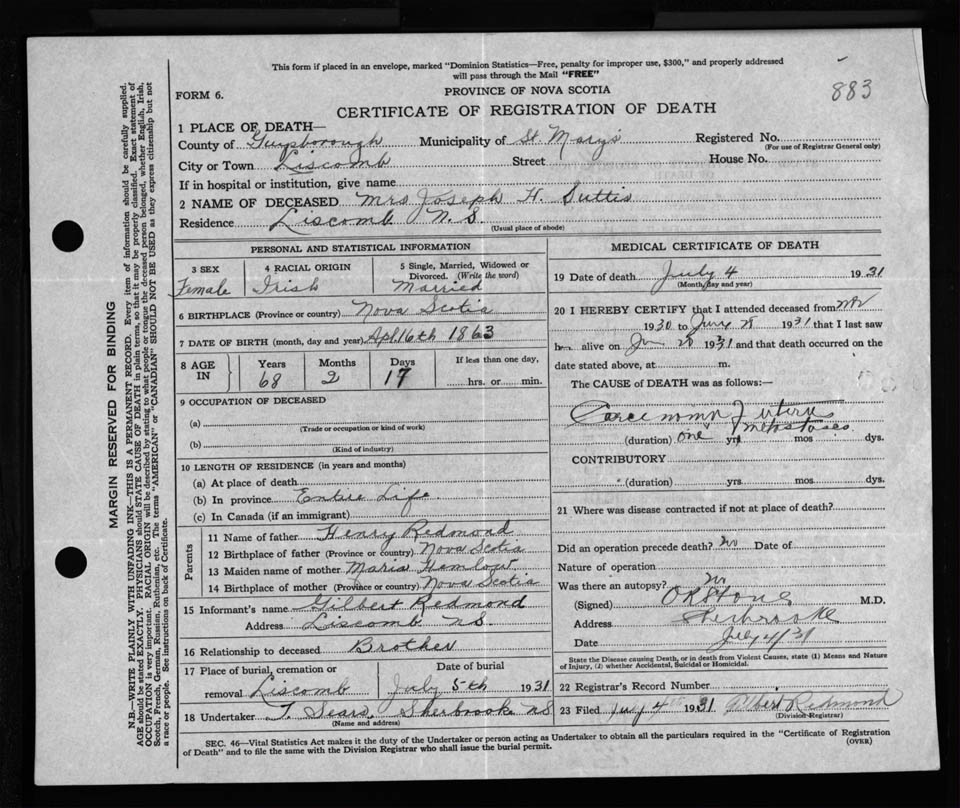 This form if placed in an envelope, marked "Dominion Statistics—Free, penalty for improper use, $300," and properly addressed
will pass through the Mail "FREE"
883
FORM 6.
PROVINCE OF NOVA SCOTIA
CERTIFICATE OF REGISTRATION OF DEATH
1 PLACE OF DEATH—
County of Guysborough Municipality of St. Mary's Registered No.
(For use of Registrar General only)
City or Town Liscomb Street House No.
If in hospital or institution, give name
2 NAME OF DECEASED Mrs Joseph H. Suttis
Residence Liscomb N.S.
(Usual place of abode)
PERSONAL AND STATISTICAL INFORMATION
3 SEX 4 RACIAL ORIGIN 5 Single, Married, Widowed or
Divorced. (Write the word)
Female Irish Married
6 BIRTHPLACE (Province or country) Nova Scotia
7 DATE OF BIRTH (month, day and year) Apl 16th 1863
8 AGE IN Years Months Days If less than one day,
68 2 17 hrs. or min.
9 OCCUPATION OF DECEASED
(a)
(Trade or occupation or kind of work)
(b)
(Kind of industry)
10 LENGTH OF RESIDENCE (in years and months)
(a) At place of death
(b) In province Entire Life
(c) In Canada (if an immigrant)
Parents
11 Name of father Henry Redmond
12 Birthplace of father (Province or country) Nova Scotia
13 Maiden name of mother Maria Hemlow
14 Birthplace of mother (Province or country) Nova Scotia
15 Informant's name Gilbert Redmond
Address Liscomb N.S.
16 Relationship to deceased Brother
17 Place of burial, cremation or Date of burial
removal Liscomb July 5th 1931
18 Undertaker T. Sears, Sherbrooke N.S
(Name and address)
MEDICAL CERTIFICATE OF DEATH
19 Date of death July 4 1931
(Month, day and year)
20 I HEREBY CERTIFY that I attended deceased from Nov
1930 to 1931 that I last saw
h alive on 1931 and that death occurred on the
date stated above, at m.
The CAUSE of DEATH was as follows:—
Carcinoma of uterus
metastases
(duration) one yrs mos dys.
CONTRIBUTORY
(duration) yrs mos dys.
21 Where was disease contracted if not at place of death?
Did an operation precede death? No Date of
Nature of operation
Was there an autopsy? No
(Signed) M.D.
Address Sherbrooke
Date July 4/31
State the Disease causing Death, or in death from Violent Causes, state (1) Means and Nature
of Injury, (2) whether Accidental, Suicidal or Homicidal.
22 Registrar's Record Number
23 Filed July 4th 1931 Redmond
(Division Registrar)
SEC. 46—Vital Statistics Act makes it the duty of the Undertaker or person acting as Undertaker to obtain all the particulars required in the "Certificate of Registration
of Death" and to file the same with the Division Registrar who shall issue the burial permit.
(OVER)
MARGIN RESERVED FOR BINDING
N.B.—WRITE PLAINLY WITH UNFADING INK—THIS IS A PERMANENT RECORD. Every item of information should be carefully supplied.
AGE should be stated EXACTLY. PHYSICIANS should STATE CAUSE OF DEATH in plain terms, so that it may be properly classified. Exact statement of
OCCUPATION is very important. RACIAL ORIGIN will be described by stating to what people or tongue the deceased person belonged, whether English, Irish,
Scotch, French, German, Russian, Ruthenian, etc. The terms "AMERICAN" or "CANADIAN" SHOULD NOT BE USED as they express citizenship but not
a race or people. See instructions on back of Certificate.